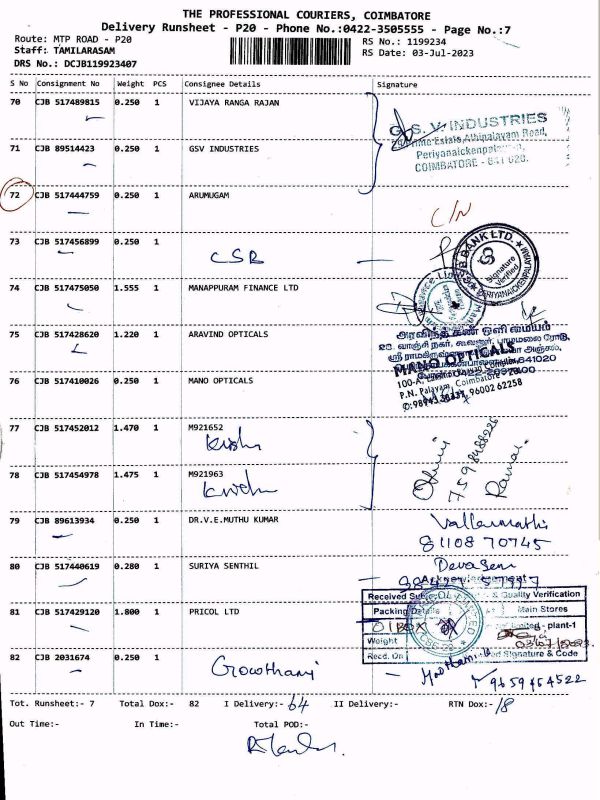 THE PROFESSIONAL COURIERS, COIMBATORE
Delivery Runsheet - P20 - Phone No.:0422-3505555 - Page No.:7
Route: MTP ROAD - P20 RS No.: 1199234
Staff: TAMILARASAM RS Date: 03-Jul-2023
DRS No.: DCJB119923407
S No Consignment No Weight PCS Consignee Details Signature
70 CJB 517489815 0.250 1 VIJAYA RANGA RAJAN
G. S. V. INDUSTRIES
Estate, Athipalayam Road,
COIMBATORE - 641 020.
71 CJB 89514423 0.250 1 GSV INDUSTRIES
72 CJB 517444759 0.250 1 ARUMUGAM
C/N
73 CJB 517456899 0.250 1
CSB
BANK LTD.
Signature Verified
74 CJB 517475050 1.555 1 MANAPPURAM FINANCE LTD
75 CJB 517428620 1.220 1 ARAVIND OPTICALS
அரவிந்த் கண் ஒளி மையம்
MANO OPTICALS
P.N. Palayam, Coimbatore
76 CJB 517410026 0.250 1 MANO OPTICALS
77 CJB 517452012 1.470 1 M921652
78 CJB 517454978 1.475 1 M921963
79 CJB 89613934 0.250 1 DR.V.E.MUTHU KUMAR
Vallarmathi
81108 70745
80 CJB 517440619 0.280 1 SURIYA SENTHIL
Acknowledgement
Received Subject to & Quality Verification
81 CJB 517429120 1.800 1 PRICOL LTD
Packing Details Main Stores
Limited - plant-1
Weight
Recd. On Signature & Code
82 CJB 2031674 0.250 1
Gowthami
9659464522
Tot. Runsheet:- 7 Total Dox:- 82 I Delivery:- 64 II Delivery:- RTN Dox:- 18
Out Time:- In Time:- Total POD:-